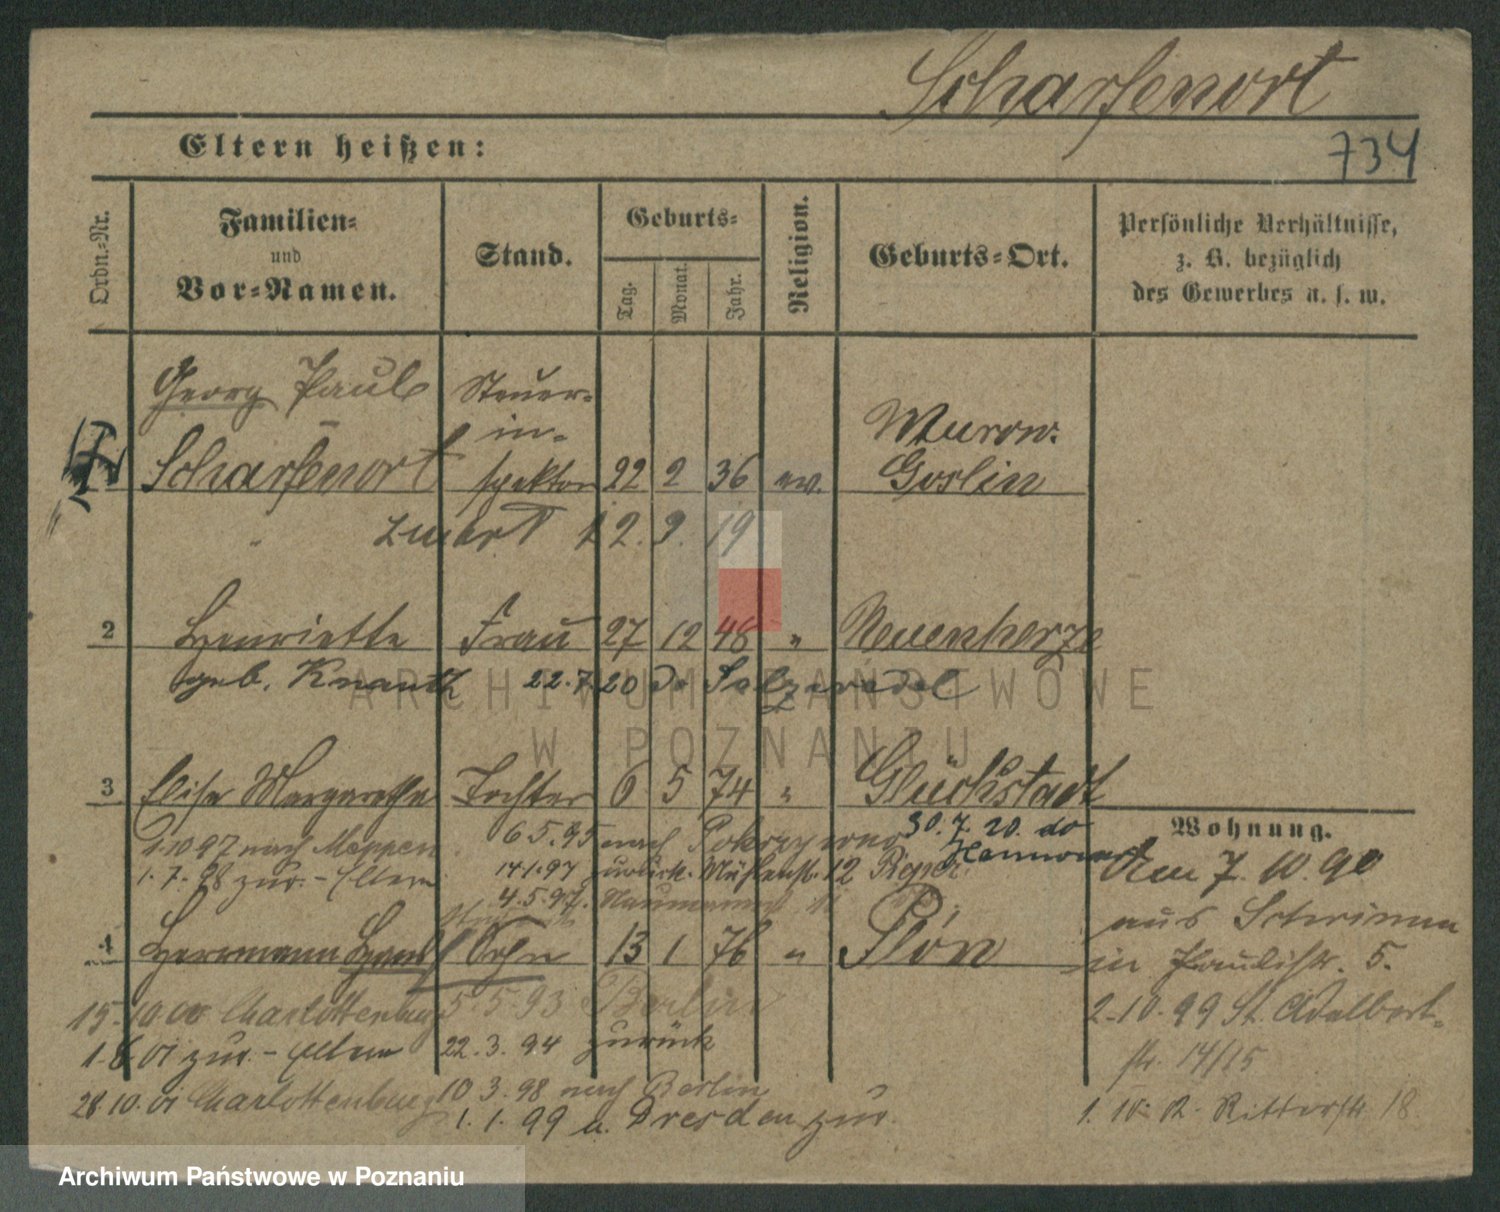 Scharfenort
734
Eltern heißen:
Ordn.-Nr.
Familien- und Vor-Namen.
Stand.
Geburts-
Tag. Monat. Jahr.
Religion.
Geburts-Ort.
Persönliche Verhältnisse,
z. B. bezüglich
des Gewerbes u. s. w.
Georg Paul Steuer-
in- Murow.
Scharfenort spektor 22 2 36 ev. Goslin
12. 9. 19
2 Henriette Frau 27 12 48 " Neuenherze
geb. Knauth 22.7.20 do Salzwedel
3 Elise Margarethe Tochter 6 5 74 " Glückstadt
30.7.20. do Hannover
1.10.97 nach Meppen 6.5.95 nach
1.7.98 zur. - Eltern 14.1.97 zurück. Mühlenst. 12
4.5.97. Naumannst.
4 Herrmann Sohn 13 1 76 " Plön
15.10.00 Charlottenburg 5.5.93 Berlin
1.6.01 zur. - Eltern 22.3.94 zurück
28.10.01 Charlottenburg 10.3.98 nach Berlin
1.1.99 a. Dresden zur.
Wohnung.
Am 7.10.90
aus Schrimm
in Paulistr. 5.
2.10.99 St. Adalbert-
str. 14/15
Ritterstr 18
ARCHIWUM PAŃSTWOWE
W POZNANIU
Archiwum Państwowe w Poznaniu